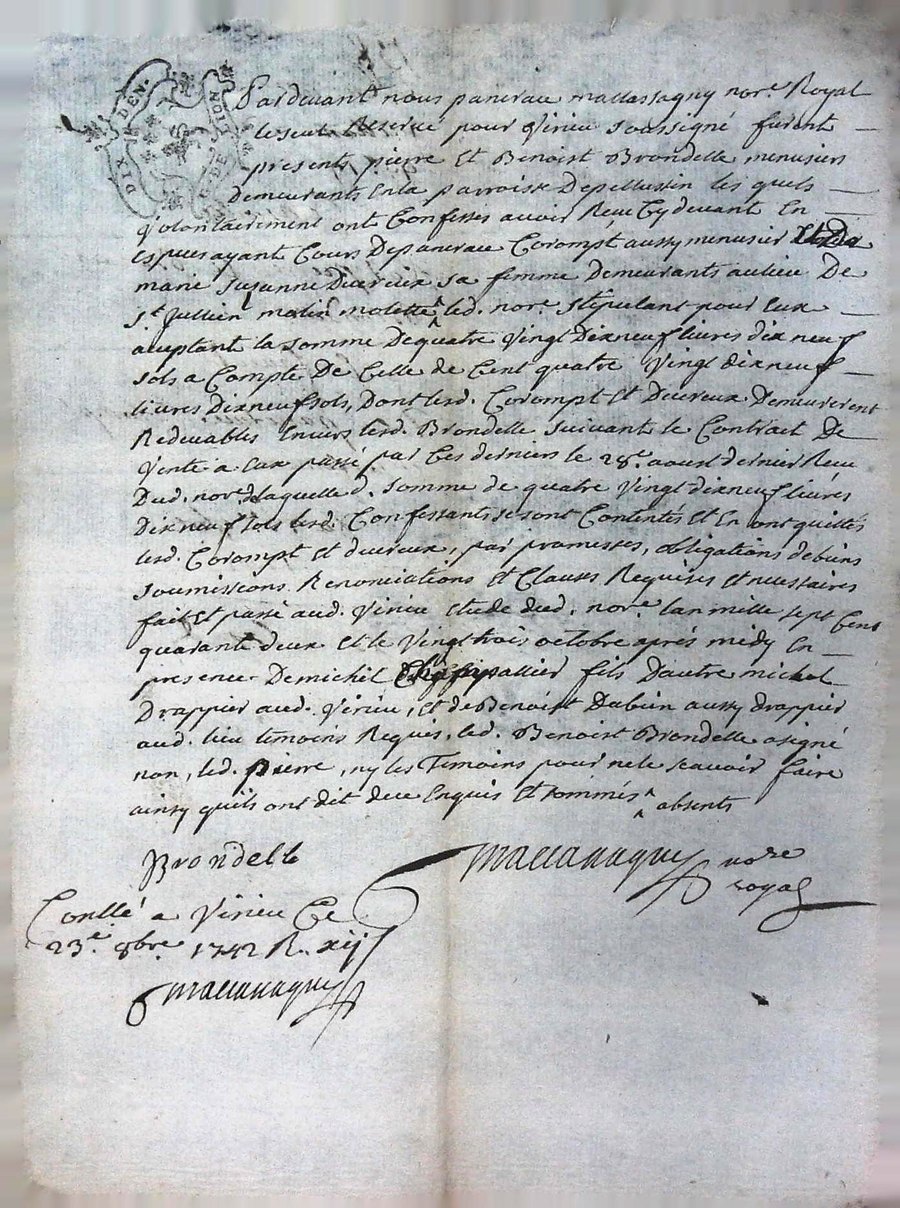 DIX DEN.
G. DE LION
Pardevant nous pancrace mallassagny nore. Royal
le seul Reservé pour Virieu soussigné furent
presents pierre Et Benoist Brondelle menusiers
Demeurants En la parroisse De pellussin les quels
Volontairement ont Confesses avoir Reçu Cy devant En
Especes ayant Cours De pancrace Corompt aussy menusier Et De
marie Susanne Decreux sa femme Demeurants au lieu De
st. Jullien molin molette led. nore. stipulant pour Eux
aceptant la somme De quatre Vingt Dixneuf livres dix neuf
sols a Compte De Celle de Cent quatre Vingt dixneuf
livres Dixneuf sols, Dont lesd. Corompt Et Decreux Demeurerent
Redevables Envers lesd. Brondelle suivant le Contract De
Vente a Eux passé par Ces derniers le 28e. aoust dernier Reçu
Dud. nore. de laquelle d. somme de quatre Vingt dixneuf livres
Dixneuf sols lesd. Confessants se sont Contentés Et En ont quittés
lesd. Corompt Et decreux, par promesses, obligations de biens
soumissions Renonciations Et Clauses Requises Et necessaires
fait Et passé aud. Virieu Etude dud. nore. lan mille sept Cent
quarante deux Et le Vingt trois octobre aprés midy En
presence De michel pallier fils D'autre michel
Drappier aud. Virieu, Et de Benoist Dabien aussy drappier
aud. lieu temoins Requis, led. Benoist Brondelle a signé
non, led. pierre, ny les Temoins pour ne le scavoir faire
ainsy quils ont dit de ce Enquis Et sommés ^ absents
Brondelle
nore
royal
Conllé a Virieu Ce
23e. 8bre. 1742 R. xij s